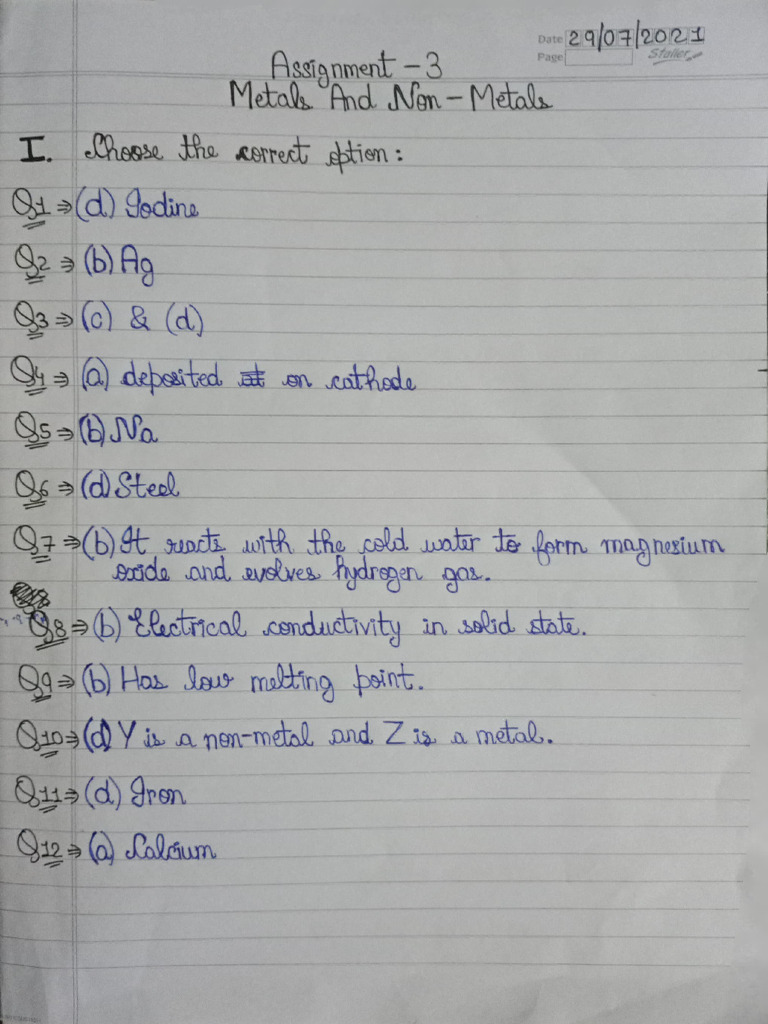 Date 29/07/2021
Page Staller
Assignment - 3
Metals And Non-Metals
I. Choose the correct option:
Q1 ⇒ (d) Iodine
Q2 ⇒ (b) Ag
Q3 ⇒ (c) & (d)
Q4 ⇒ (a) deposited on cathode
Q5 ⇒ (b) Na
Q6 ⇒ (d) Steel
Q7 ⇒ (b) It reacts with the cold water to form magnesium
oxide and evolves hydrogen gas.
Q8 ⇒ (b) Electrical conductivity in solid state.
Q9 ⇒ (b) Has low melting point.
Q10 ⇒ (d) Y is a non-metal and Z is a metal.
Q11 ⇒ (d) Iron
Q12 ⇒ (a) Calcium